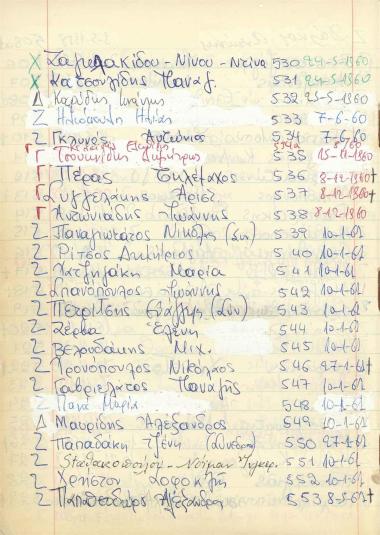 Χ Ζαμελακίδου - Νίνου - Ντίνα 530 24-5-1960
Χ Κατσουλίδης Παναγ. 531 24-5-1960
Δ Καρύδης 532 25-5-1960
Ζ 533 7-6-60
Ζ Γκρυνός Αντώνιος 534 7-6-60
534α
Γ Τσουκνίδης Δημήτριος 535 15-11-1960
Γ Πέρας Τηλέμαχος 536 8-12-1960 †
Γ Συγγελάκης Αριστ. 537 8-12-1960 †
Γ Αντωνιάδης Ιωάννης 538 8-12-1960
Ζ Παναγιωτάτος Νικόλ. (Συν) 539 10-1-61
Ζ Ρίτσος Δημήτριος 540 10-1-61
Ζ Χατζηγάκη Μαρία 541 10-1-61
Ζ Σπανόπουλος Ιωάννης 542 10-1-61
Ζ Πετρίτσης Βλάσης (Συν) 543 10-1-61
Ζ Ζέρβα Ελένη 544 10-1-61
Ζ Βελουδάκης Μιχ. 545 10-1-61
Ζ Νικόλαος 546 27-1-61 †
Ζ Γαβριελάτος Παναγής 547 10-1-61
Ζ Παπά Μαρία 548 10-1-61
Δ Μαυρίδης Αλέξανδρος 549 10-1-61
Ζ Παπαδάκη Τζένη (Συνεργ) 550 27-1-61
Σταθακοπούλου - Νόϊμαν Ίνγκερ. 551 10-1-61
Ζ Χρήστου Σοφοκλής 552 10-1-61
Ζ Παπαθεοδώρ. Αλεξάνδρα 553 8-5-61 †